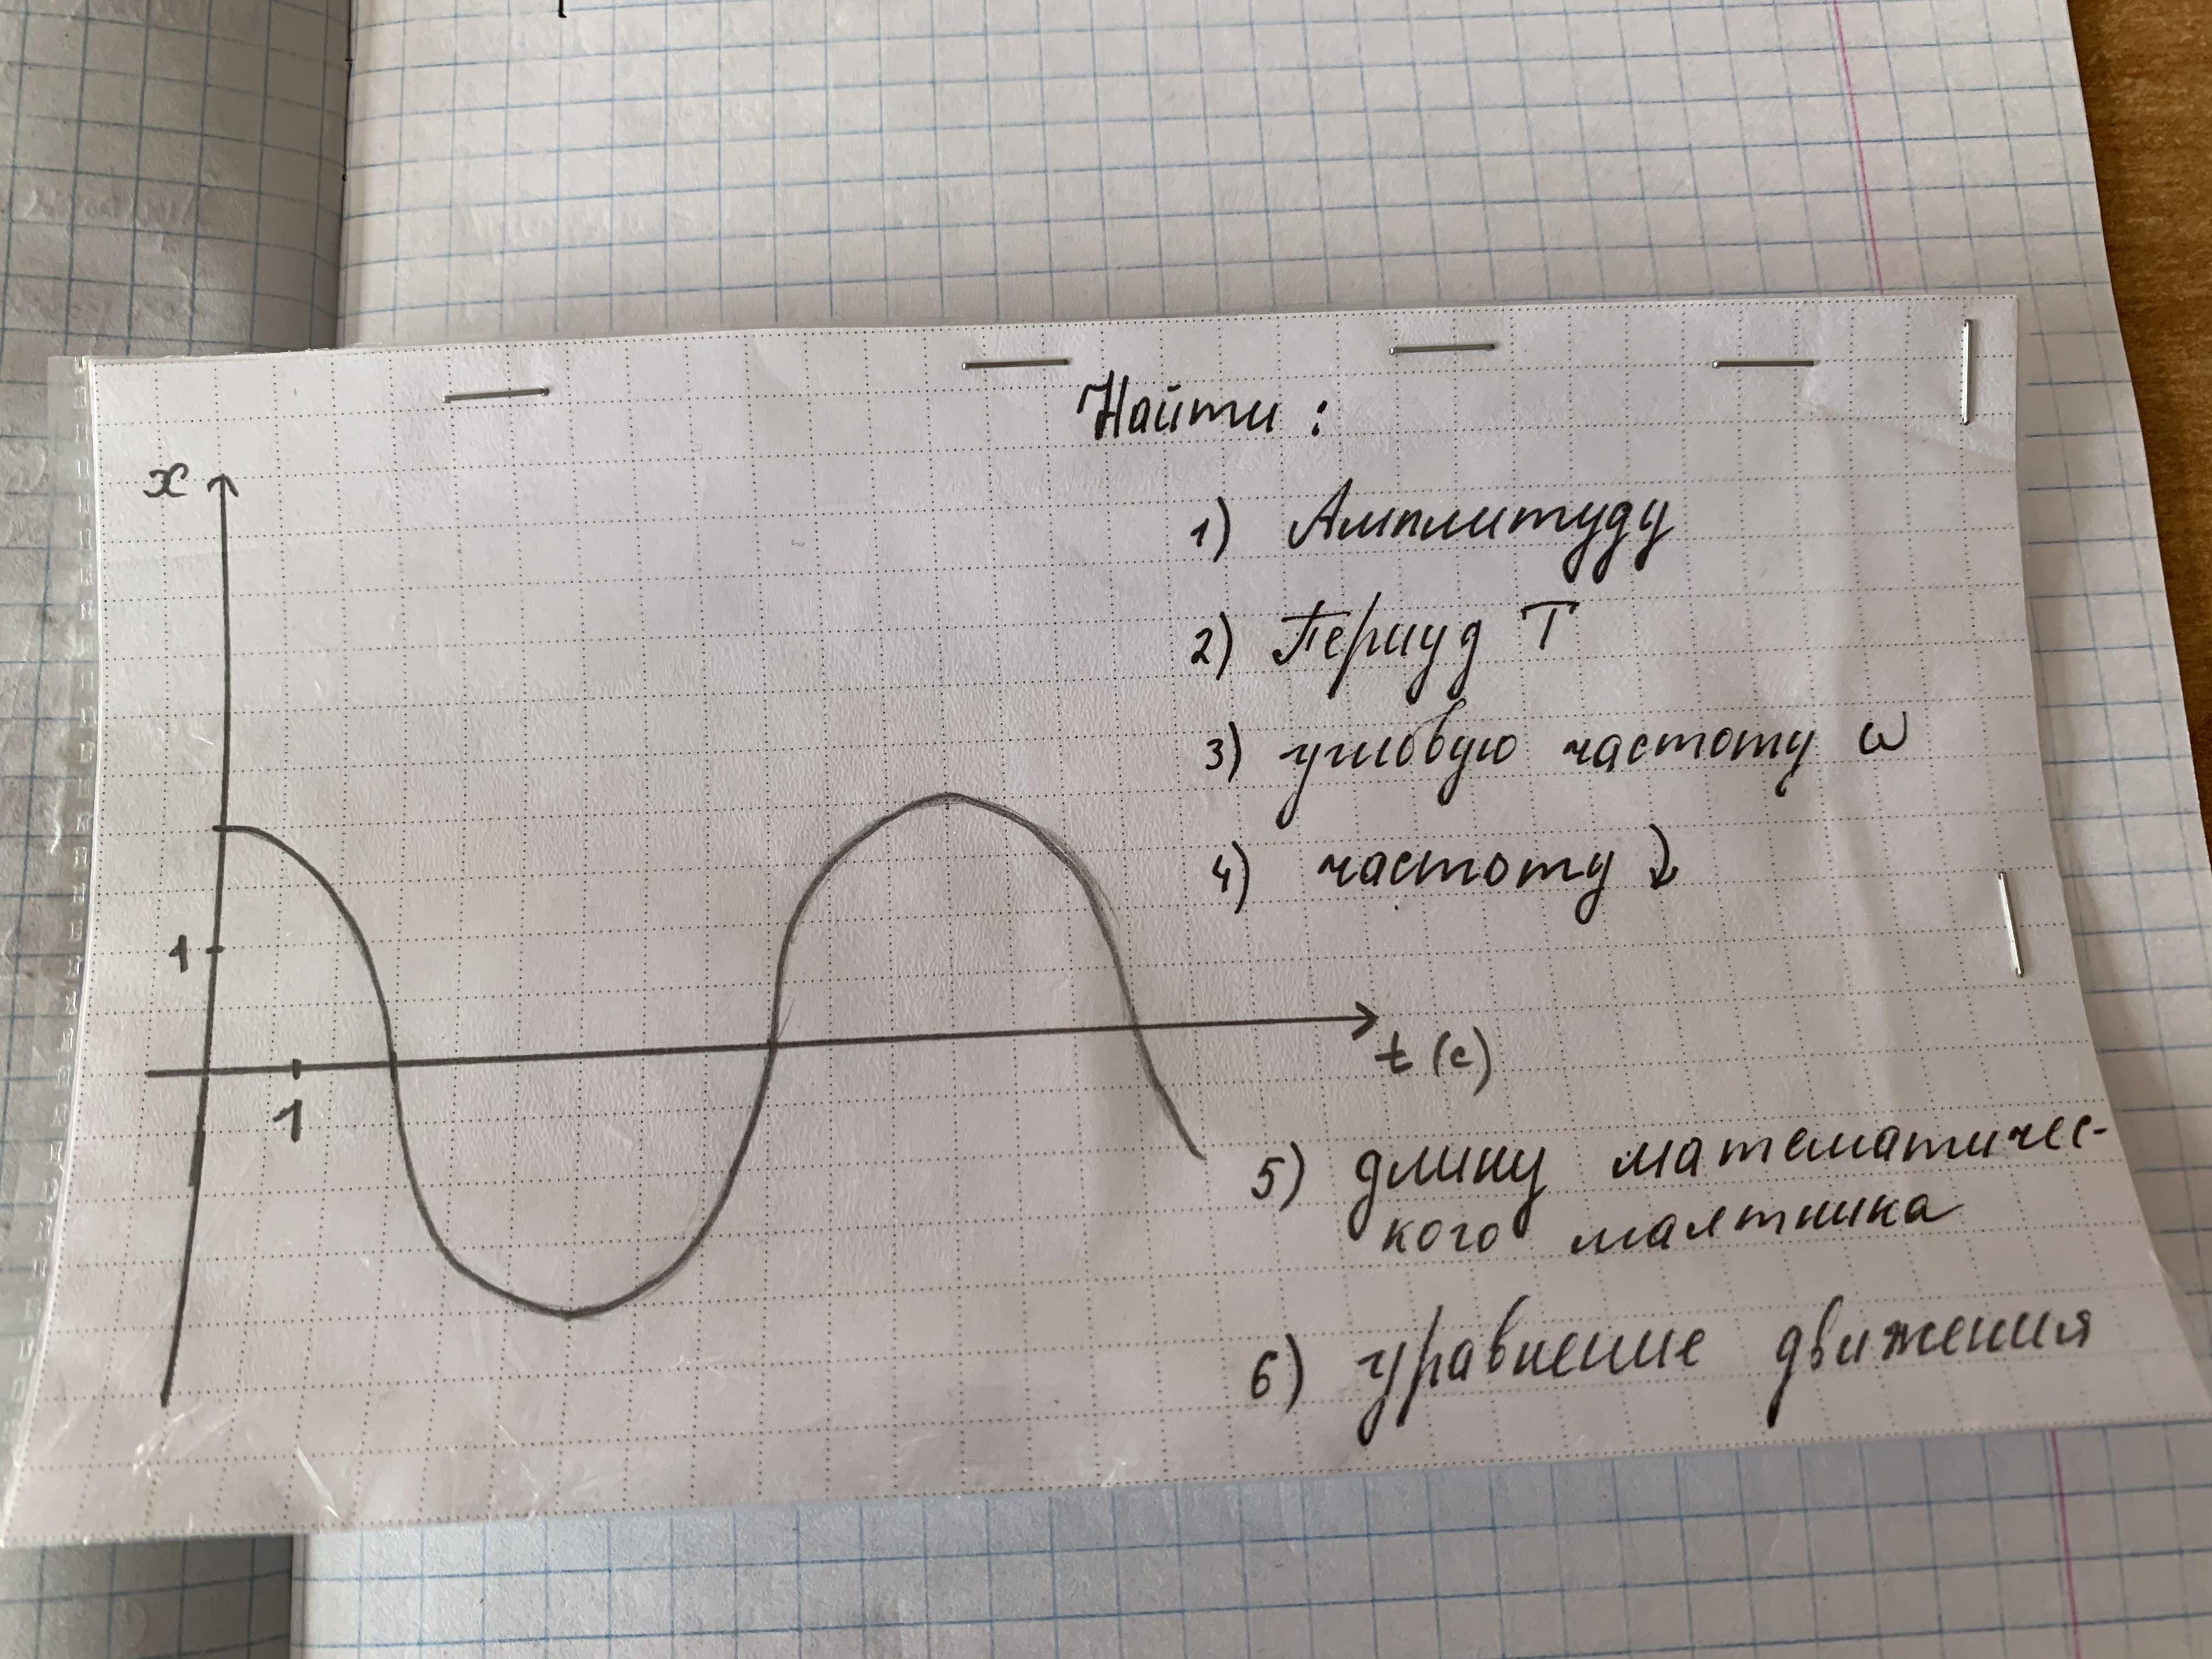 Найти :
x
1) Амплитуду
2) Периуд T
3) угловую частоту ω
4) частоту ν
1
t (c)
1
5) длину математичес-
кого маятника
6) уравнение движения